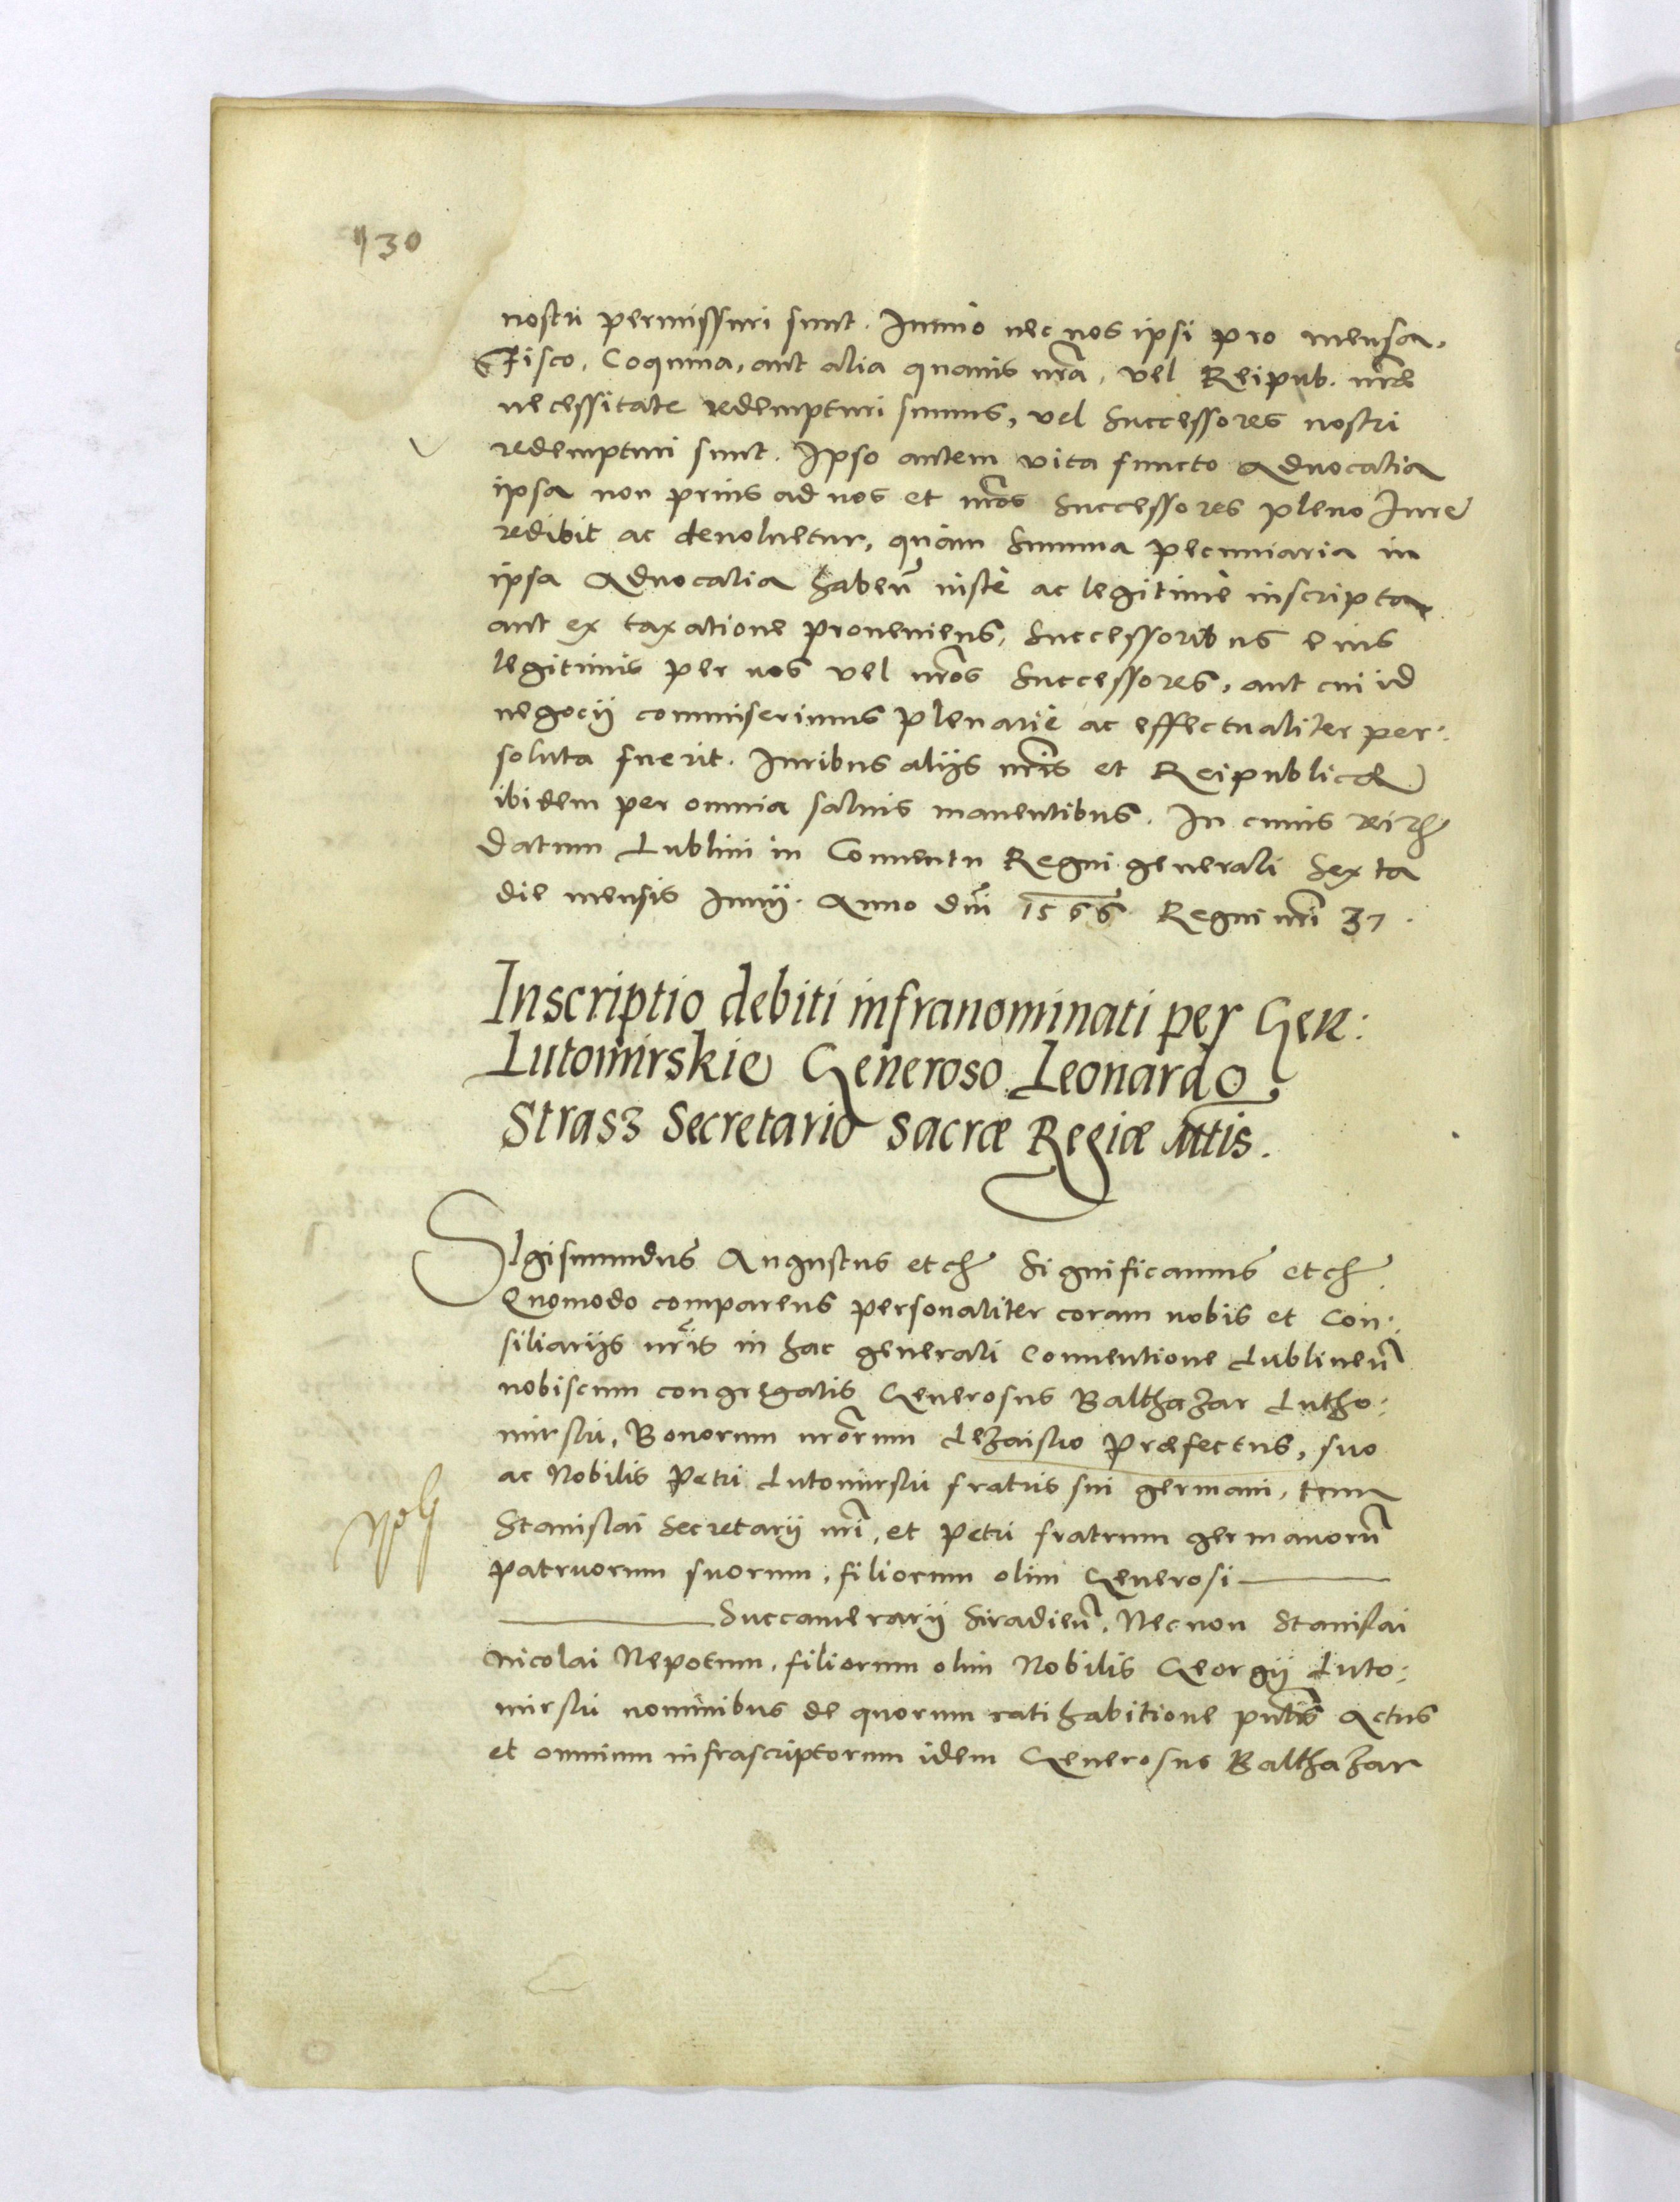 130
nostri permissuri sunt. Immo nec nos ipsi pro mensa,
Fisco, Coquina, aut alia quauis nrã, vel Reipub. nrãe
necessitate redempturi sumus, vel Successores nostri
redempturi sunt. Ipso autem vita functo Aduocatia
ipsa non prius ad nos et nrõs Successores pleno Iure
redibit ac deuoluetur, quàm Summa pecuniaria in
ipsa Aduocatia habeñ iustè ac legitimè inscripta
aut ex taxatione proueniens, Successoribus eius
legitimis per nos vel nrõs Successores, aut cui id
negocij commiserimus plenariè ac effectualiter per:
soluta fuerit. Iuribus alijs nrĩs et Reipublicæ
ibidem per omnia saluis manentibus. In cuius rei
Datum Lublini in Conuentu Regni generali Sexta
die mensis Iunij. Anno dnĩ 1566 Regni nrĩ 37.
Inscriptio debiti infranominati per Gen:
Lutomirskie Generoso Leonardo
Strasz Secretario Sacræ Regiæ Mtis.
SIgismundus Augustus etc Significamus etc
Quomodo comparens personaliter coram nobis et Con:
siliarijs nrĩs in hac generali Conuentione Lublineñ
nobiscum congregatis Generosus Balthazar Lutho:
mirski, Bonorum nrõrum Lezaisko Præfectus, suo
ac Nobilis Petri Lutomirski fratris sui germani, tum
Stanislai Secretarij nrĩ, et Petri fratrum germanorũ
patruorum suorum, filiorum olim Generosi
Succamerarij Siradieñ, Necnon Stanislai
Nicolai Nepotum, filiorum olim Nobilis Georgij Luto:
mirski nominibus de quorum ratihabitione pñtis Actus
et omnium infrascriptorum idem Generosus Balthazar